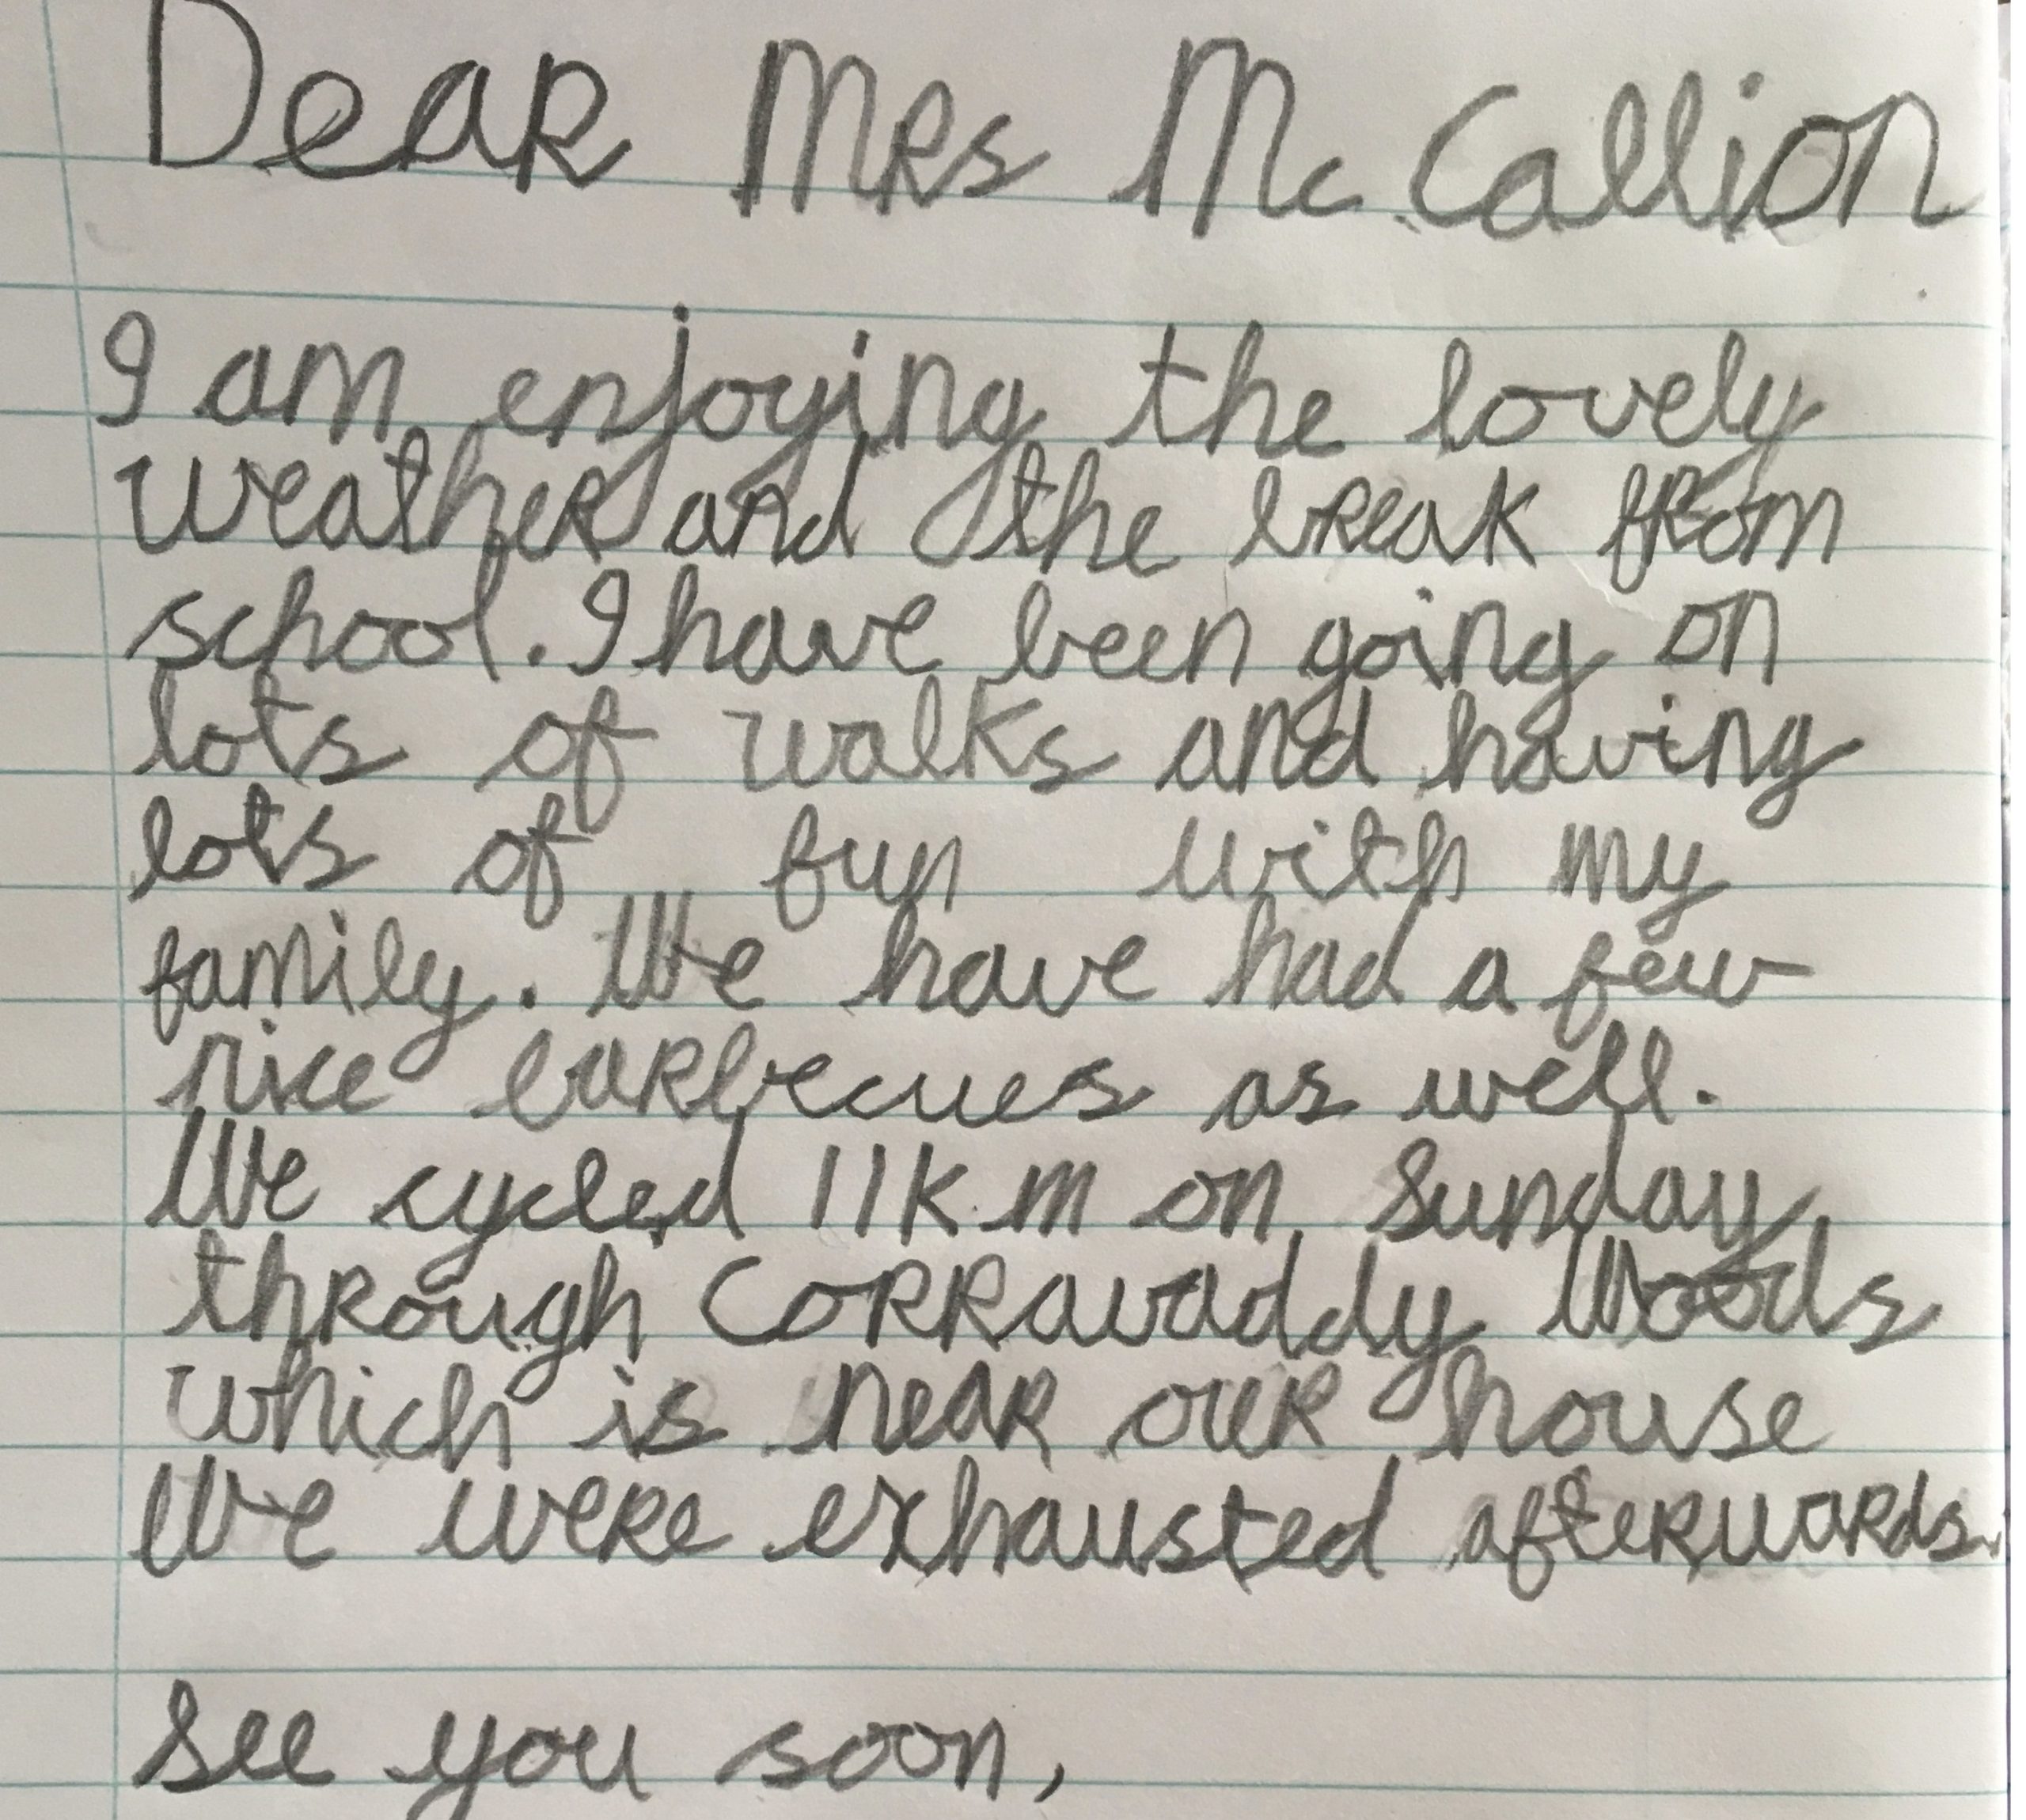 Dear Mrs Mc Callion
I am enjoying the lovely
weather and the break from
school. I have been going on
lots of walks and having
lots of fun with my
family. We have had a few
nice barbecues as well.
We cycled 11km on Sunday
through Corravaddy Woods
which is near our house
We were exhausted afterwards.
See you soon,